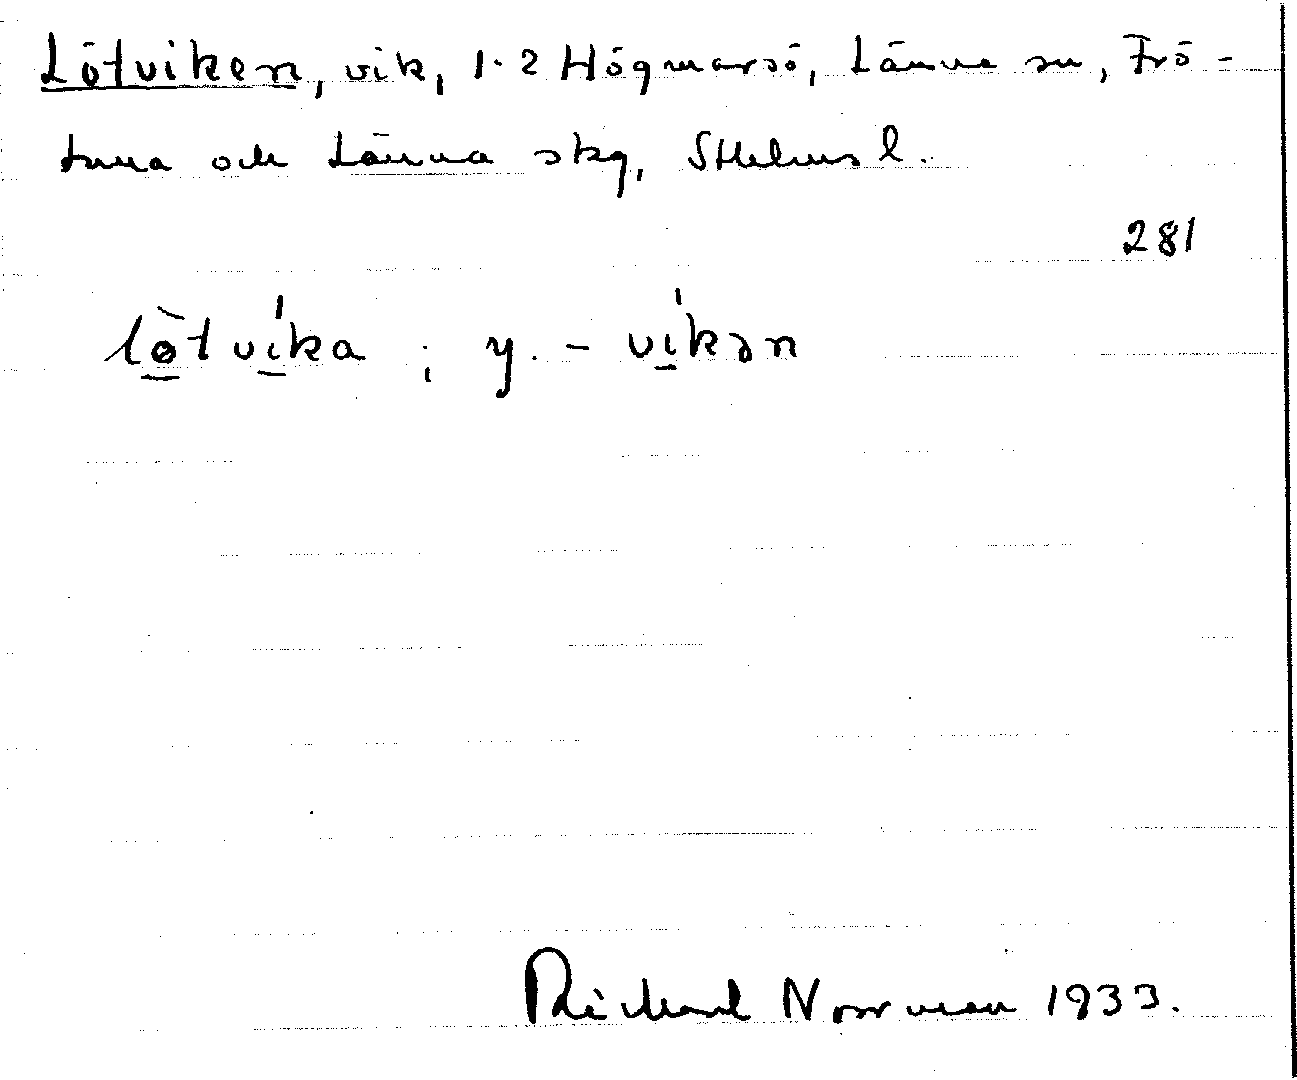 Lötviken, vik, 1.2 Högmarsö, Länna sn, Frö-
tuna och Länna skg, Sthlms l.
281
lø̀tvíka ; y. - víkən
Richard Norrman 1933.